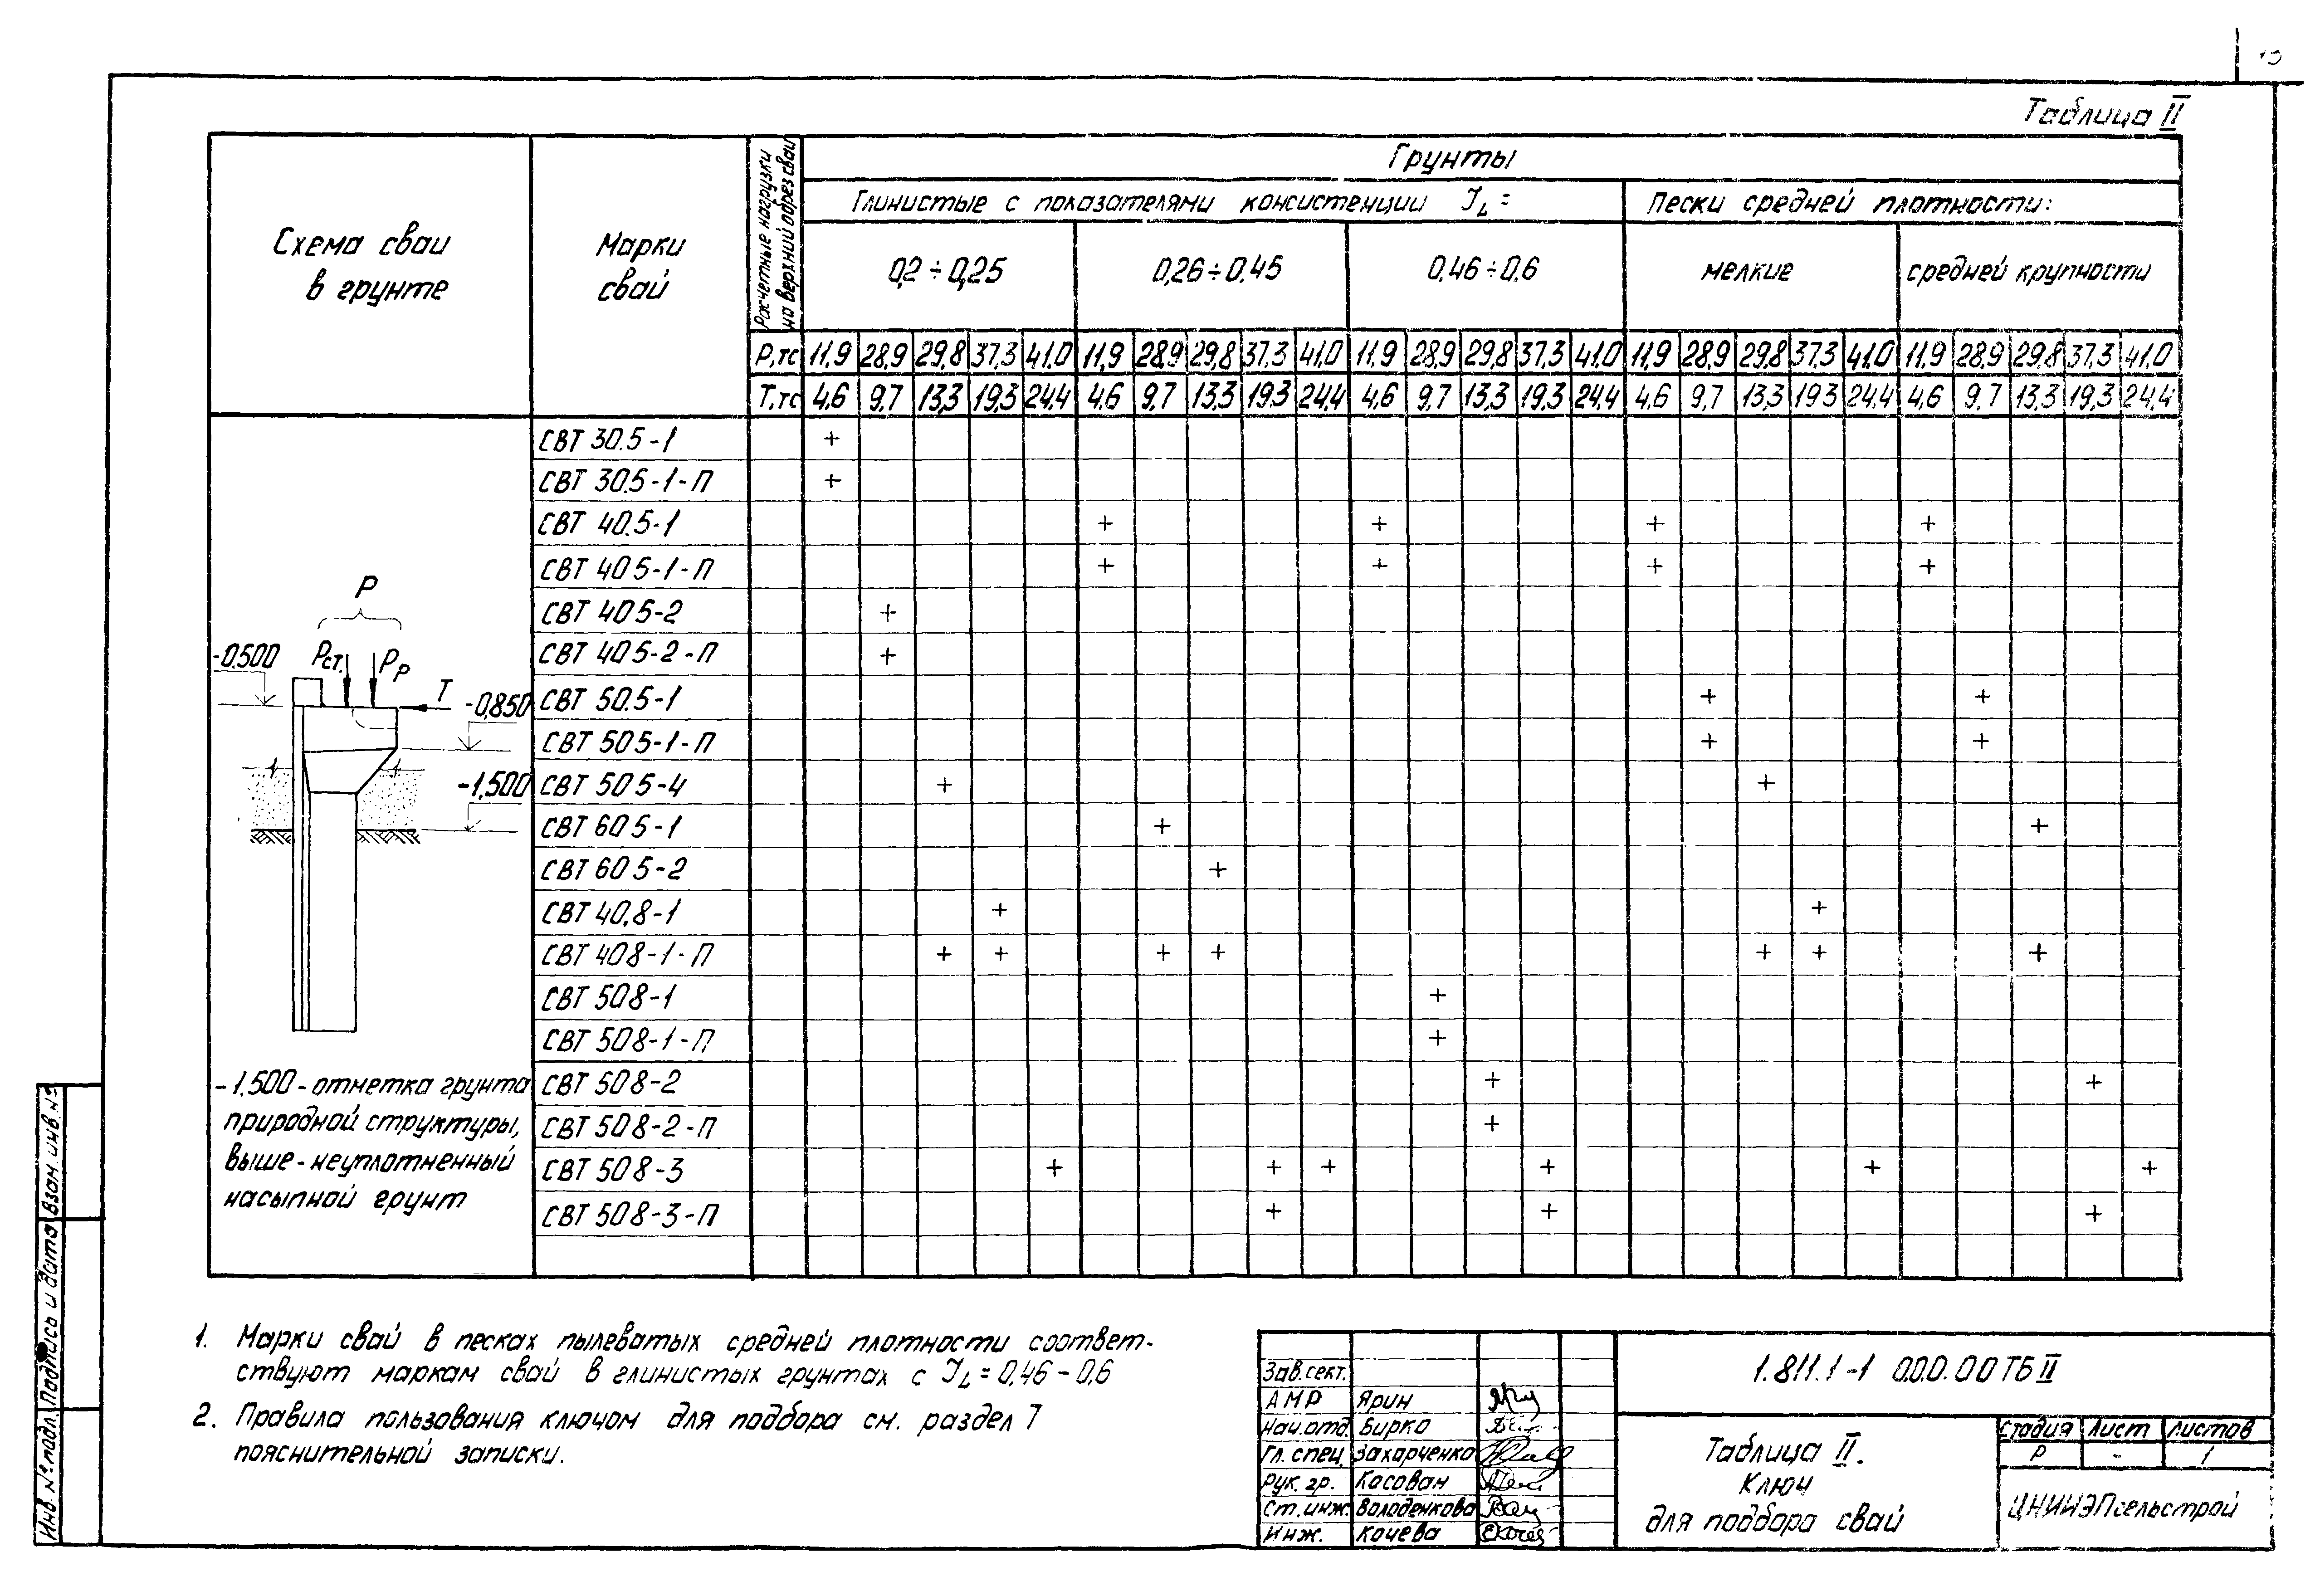 Таблица II
Схема сваи
в грунте
Марки
свай
Расчетные нагрузки
на верхний обрез сваи
Грунты
Глинистые с показателями консистенции JL =
Пески средней плотности:
0,2 ÷ 0,25
0,26 ÷ 0,45
0,46 ÷ 0,6
мелкие
средней крупности
Р,тс 11,9 28,9 29,8 37,3 41,0 11,9 28,9 29,8 37,3 41,0 11,9 28,9 29,8 37,3 41,0 11,9 28,9 29,8 37,3 41,0 11,9 28,9 29,8 37,3 41,0
Т,тс 4,6 9,7 13,3 19,3 24,4 4,6 9,7 13,3 19,3 24,4 4,6 9,7 13,3 19,3 24,4 4,6 9,7 13,3 19 3 24,4 4,6 9,7 13,3 19,3 24,4
СВТ 30.5-1 +
СВТ 30.5-1-П +
СВТ 40.5-1 + + + +
СВТ 40 5-1-П + + + +
СВТ 40 5-2 +
СВТ 40 5-2-П +
СВТ 50.5-1 + +
СВТ 50 5-1-П + +
СВТ 50 5-4 + +
СВТ 60 5-1 + +
СВТ 60 5-2 +
СВТ 40,8-1 + +
СВТ 40 8-1-П + + + + + + +
СВТ 50 8-1 +
СВТ 50 8-1-П +
СВТ 50 8-2 + +
СВТ 50 8-2-П +
СВТ 50 8-3 + + + + + +
СВТ 50 8-3-П + + +
Р
-0.500
Рст.
Рр
Т
-0,850
-1,500
-1,500-отметка грунта
природной структуры,
выше-неуплотненный
насыпной грунт
1. Марки свай в песках пылеватых средней плотности соответ-
ствуют маркам свай в глинистых грунтах с JL = 0,46 - 0,6
2. Правила пользования ключом для подбора см. раздел 7
пояснительной записки.
Зав.сект.
АМР Ярин
Нач.отд. Бирко
Гл. спец. Захарченко
Рук. гр. Косован
Ст.инж. Володенкова
Инж. Кочева
1.811.1-1 0.0.0.00ТБ II
Таблица II.
Ключ
для подбора свай
Стадия Лист Листов
Р - 1
ЦНИИЭПсельстрой
Инв. № подл. Подпись и дата Взам. инв. №